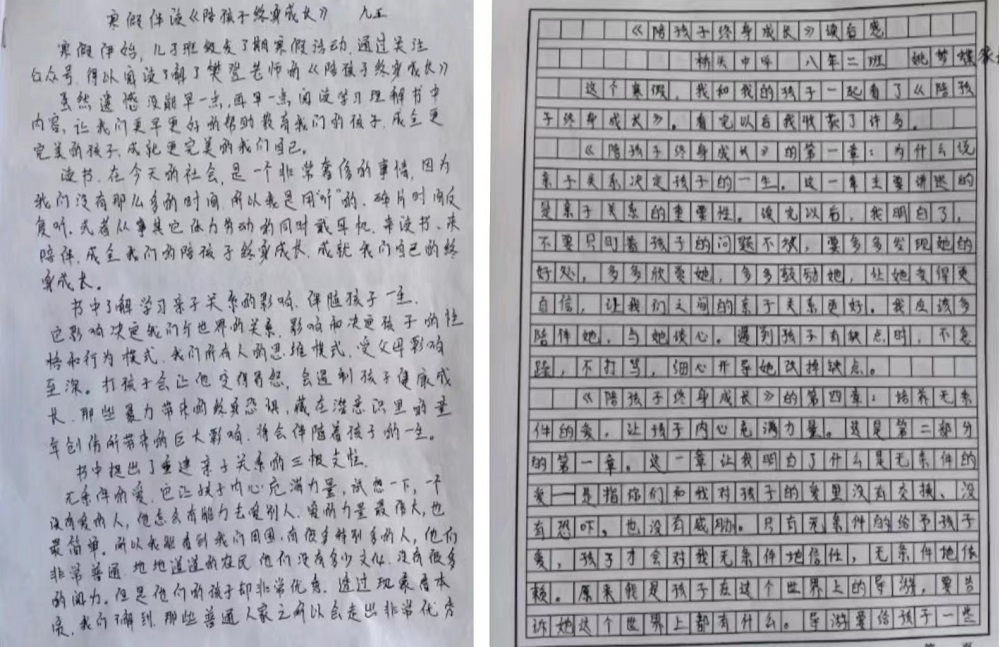 寒假伴读《陪孩子终身成长》 九五
寒假伊始，儿子班级发了期寒假活动，通过关注
公众号，得以阅读了解了樊登老师的《陪孩子终身成长》
虽然遗憾没能早一点，再早一点阅读学习理解书中
内容，让我们更早更好的帮助教育我们的孩子，成全更
完美的孩子，成就更完美的我们自己。
读书，在今天的社会，是一个非常奢侈的事情，因为
我们没有那么多的时间，所以我是用“听”的，碎片时间反
复听，或者从事其它体力劳动的同时戴耳机，来读书、来
陪伴，成全我们的陪孩子终身成长，成就我们自己的终
身成长。
书中了解学习亲子关系的影响，伴随孩子一生，
它影响决定我们与世界的关系，影响和决定孩子的性
格和行为模式，我们所有人的思维模式，受父母影响
至深。打孩子会让他变得易怒，会遏制孩子健康成
长，那些暴力带来的敌意恐惧，藏在潜意识里的童
年创伤所带来的巨大影响，将会伴随着孩子的一生。
书中提出了重建亲子关系的三根支柱，
无条件的爱，它让孩子内心充满力量，试想一下，一个
没有爱的人，他怎么有能力去爱别人，爱的力量最伟大，也
最简单。所以我能看到我们周围，有很多特别多的人，他们
非常普通，地地道道的农民，他们没有多少文化，没有很多
的阅历。但是他们的孩子却非常优秀，透过现象看本
质，我们了解到，那些普通人家之所以会走出非常优秀
《陪孩子终身成长》读后感
桥头中学 八年二班 姚梦蝶家
这个寒假，我和我的孩子一起看了《陪孩
子终身成长》。看完以后我收获了许多。
《陪孩子终身成长》的第一章：为什么说
亲子关系决定孩子的一生。这一章主要讲述的
是亲子关系的重要性。读完以后，我明白了，
不要只盯着孩子的问题不放，要多多发现她的
好处，多多欣赏她，多多鼓励她，让她变得更
自信，让我们之间的亲子关系更好。我应该多
陪伴她，与她谈心。遇到孩子有缺点时，不急
躁，不打骂，细心开导她改掉缺点。
《陪孩子终身成长》的第四章：培养无条
件的爱，让孩子内心充满力量。这是第二部分
的第一章。这一章让我明白了什么是无条件的
爱——是指你们和我对孩子的爱里没有交换、没
有恐吓，也没有威胁。只有无条件的给予孩子
爱，孩子才会对我无条件地信任，无条件地依
赖。原来我是孩子在这个世界上的导游，要告
诉她这个世界上都有什么。导游要给孩子一些